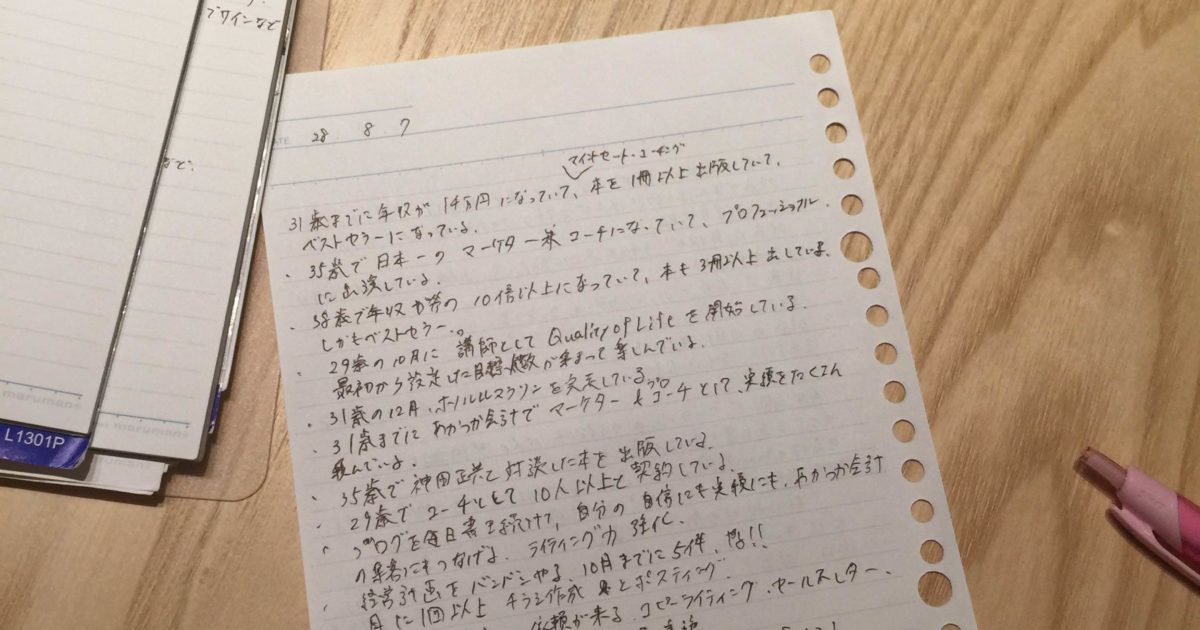 ブワインなど
など:
maruman
L1301P
maruman
DATE 28. 8. 7
マインドセット・コーチング
31歳までに年収が1千万円になっていて、本を1冊以上出版していて、
ベストセラーになっている。
・35歳で日本一のマーケター兼コーチになっていて、プロフェッショナル
に出演している。
・38歳で年収が今の10倍以上になっていて、本も3冊以上出している。
しかもベストセラー。
・29歳の10月に講師としてQuality of Lifeを開始している。
最初から設定した目標人数が集まって楽しんでいる。
・31歳の12月、ホノルルマラソンを完走している。
・31歳までにあかつか会計でマーケター&プロコーチとして、実績をたくさん
積んでいる。
・35歳で神田正典と対談した本を出版している。
・29歳でコーチとして10人以上と契約している。
・ブログを毎日書き続けて、自分の自信にも実績にも、あかつか会計
の集客にもつなげる。ライティング力強化。
・経営計画をバンバンやる。10月までに5件、!!
・月に1回以上チラシ作成とポスティング。
依頼が来る。コピーライティング・セールスレター、